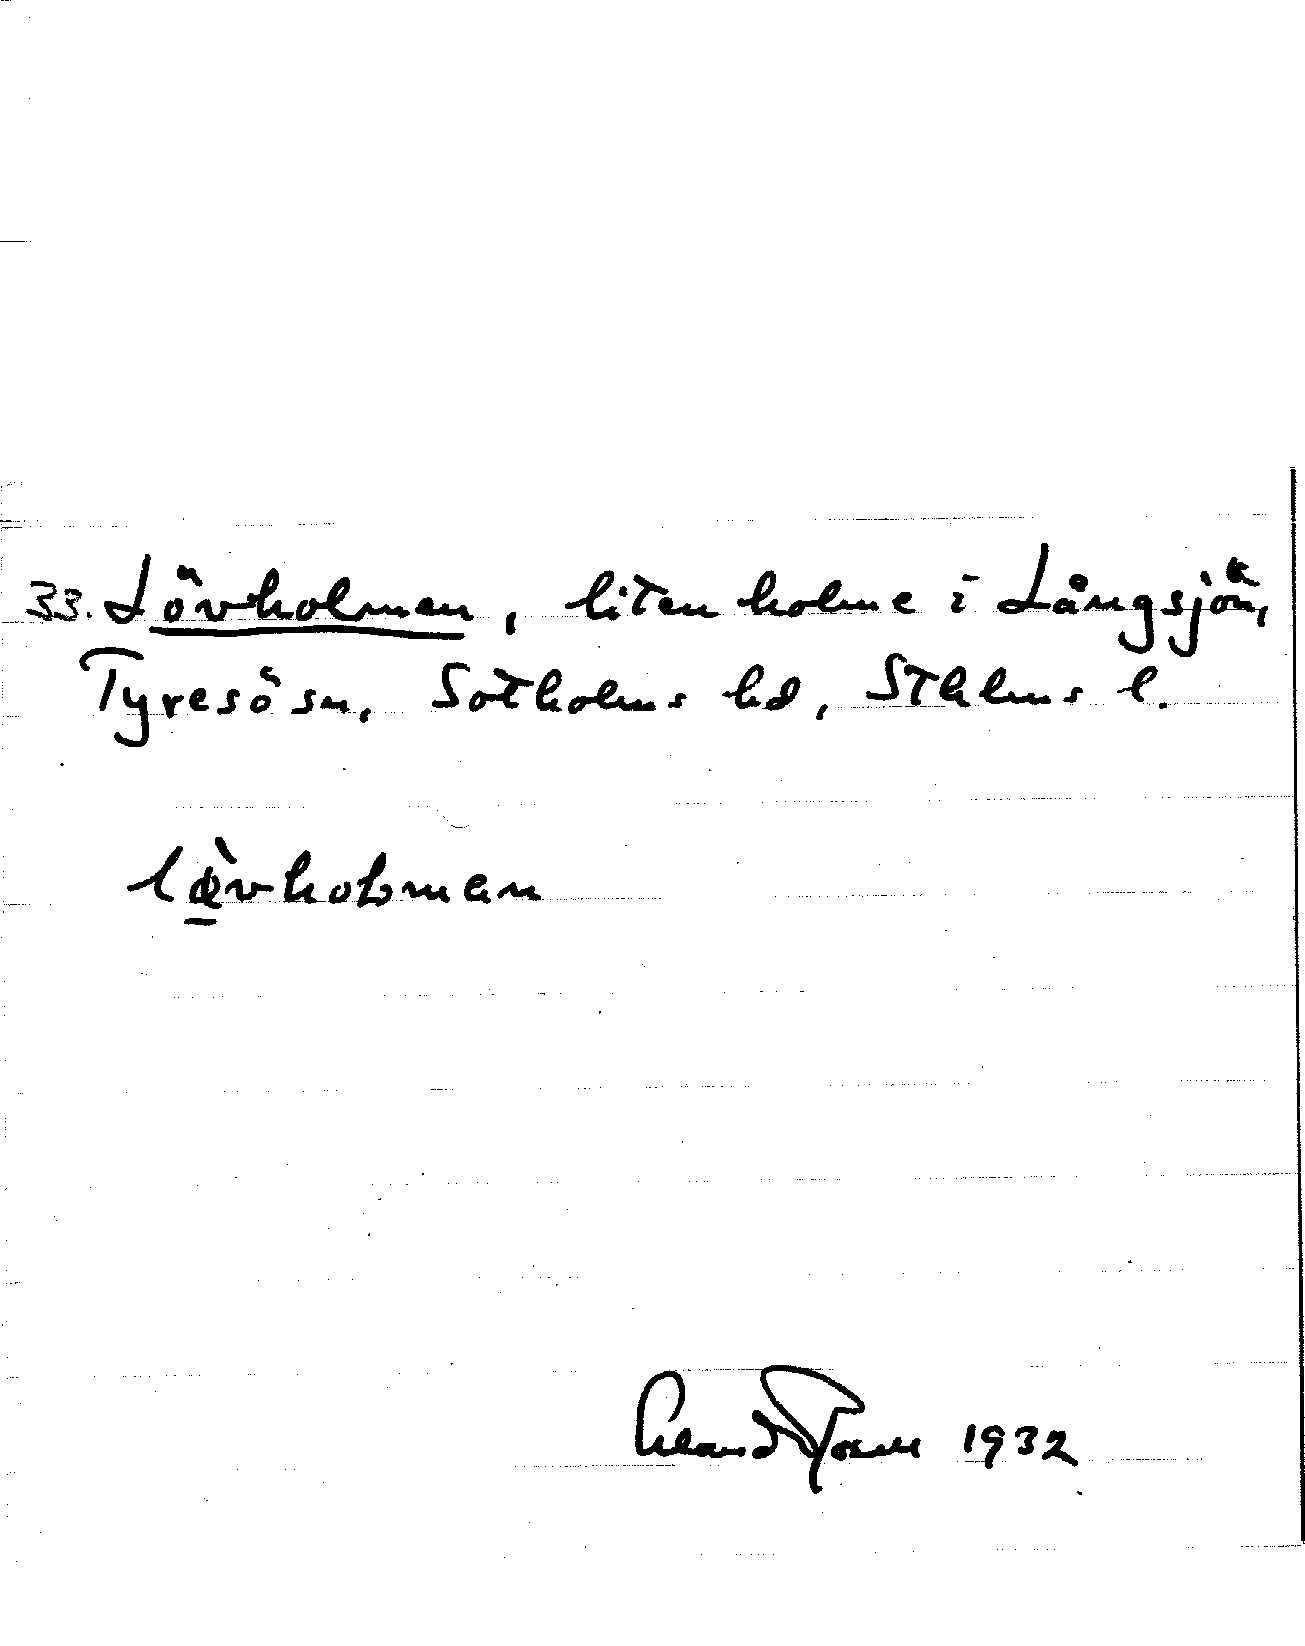 33. Lövholmen, liten holme i Långsjön,
Tyresö sn, Sotholms hd, Sthlms l.
lø̱̀vhoḷman
1932